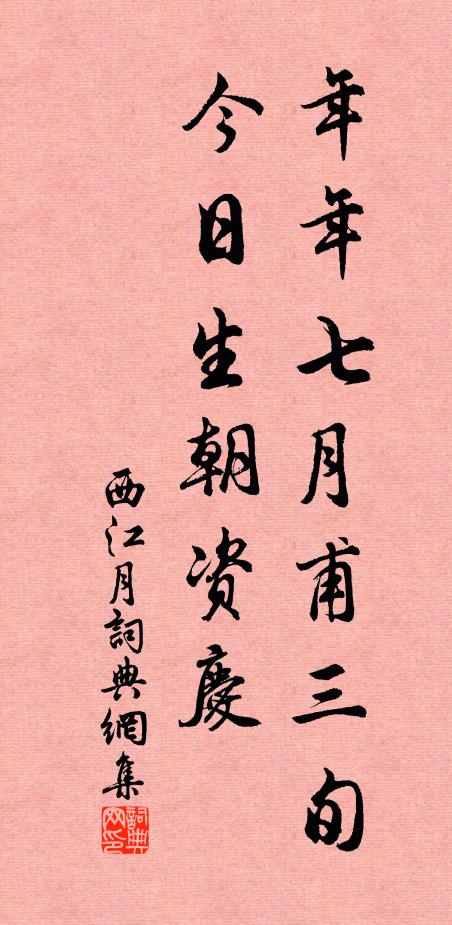 年年七月甫三旬
今日生朝資慶
西江月詞典網集
詞典网印